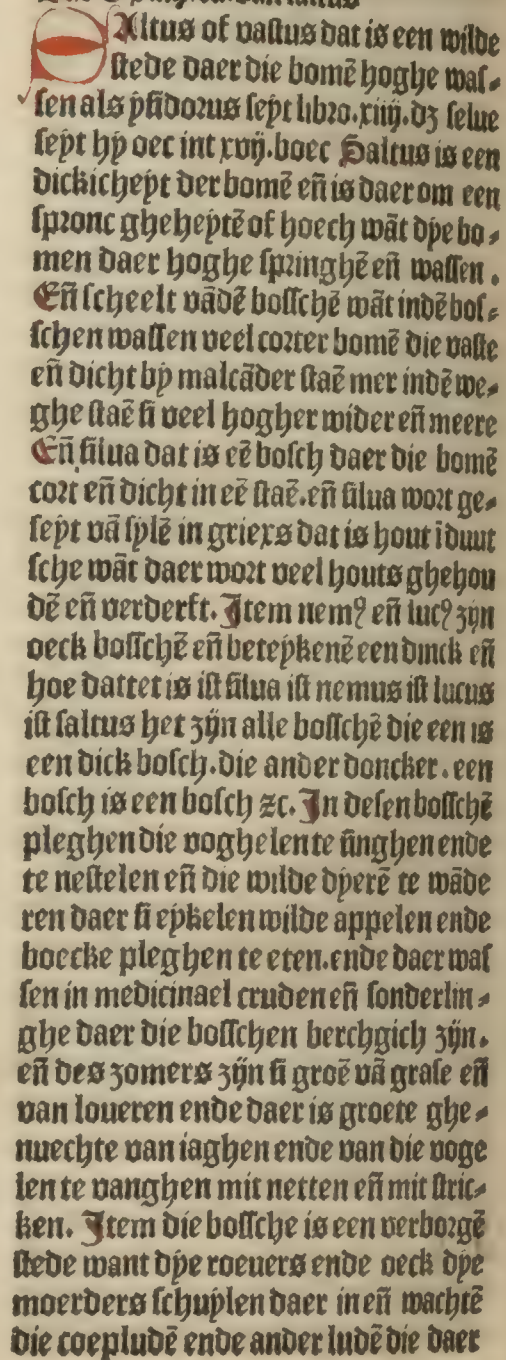 SAltus of vastus dat is een wilde
stede daer die bomē hoghe was⸗
sen als ysidorus seyt libro.xiiij.dz selue
seyt hy oec int xvij.boec Saltus is een
dickicheyt der bomē eñ is daer om een
spronc gheheytē of hoech wāt dye bo⸗
men daer hoghe springhē eñ wassen.
Eñ scheelt vādē bosschē wāt indē bos⸗
schen wassen veel corter bomē die vaste
eñ dicht by malcāder staē mer indē we⸗
ghe staē si veel hogher wider eñ meere
Eñ silua dat is eē bosch daer die bomē
cort eñ dicht in eē staē.eñ silua wort ge⸗
seyt vā sylē in griexs dat is hout i duut
sche wāt daer wort veel houts ghehou
dē eñ verderft. Item nemꝰ eñ lucꝰ zijn
oeck bosschē eñ beteykenē een dinck eñ
hoe dattet is ist silua ist nemus ist lucus
ist saltus het zijn alle bosschē die een is
een dick bosch.die ander doncker.een
bosch is een bosch ꝛc. In desen bosschē
pleghen die voghelen te singhen ende
te nestelen eñ die wilde dyerē te wāde
ren daer si eykelen wilde appelen ende
boecke pleghen te eten.ende daer was
sen in medicinael cruden eñ sonderlin⸗
ghe daer die bosschen berchgich zijn.
eñ des zomers zijn si groē vā grase eñ
van loueren ende daer is groete ghe⸗
nuechte van iaghen ende van die voge
len te vanghen mit netten eñ mit stric⸗
ken. Item die bossche is een verborgē
stede want dye roeuers ende oeck dye
moerders schuylen daer in eñ wachtē
die coepludē ende ander ludē die daer